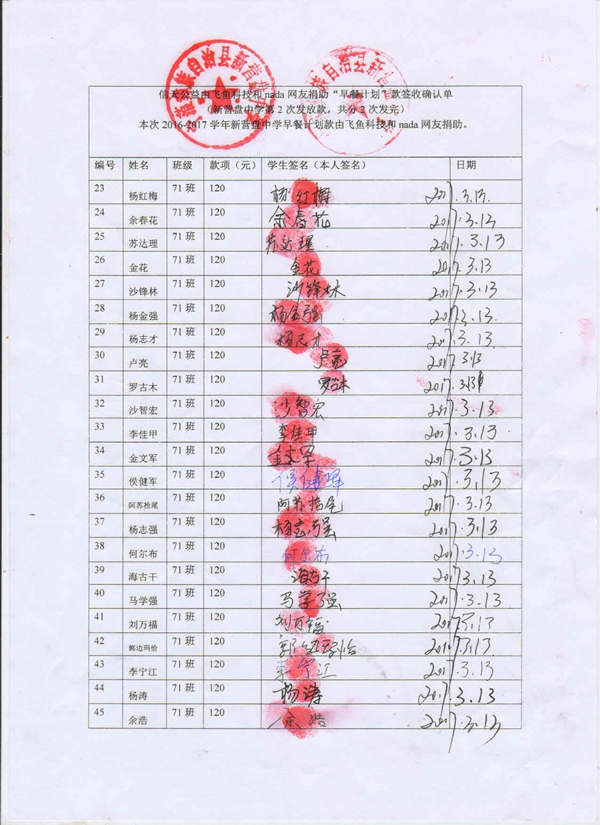 族自治县新营盘
族自治县新营盘
信天公益由飞鱼科技和 nada 网友捐助“早餐计划”款签收确认单
（新营盘中学第 2 次发放款，共分 2 次发完）
本次 2016-2017 学年新营盘中学早餐计划款由飞鱼科技和 nada 网友捐助。
编号 姓名 班级 款项（元） 学生签名（本人签名） 日期
23 杨红梅 71 班 120 杨红梅 2017.3.13
24 余春花 71 班 120 余春花 2017.3.13
25 苏达理 71 班 120 苏达理 2017.3.13
26 金花 71 班 120 金花 2017.3.13
27 沙锋林 71 班 120 沙锋林 2017.3.13
28 杨金强 71 班 120 杨金强 2017.3.13
29 杨志才 71 班 120 杨志才 2017.3.13
30 卢亮 71 班 120 卢亮 2017.3.13
31 罗古木 71 班 120 罗古木 2017.3.13
32 沙智宏 71 班 120 沙智宏 2017.3.13
33 李佳甲 71 班 120 李佳甲 2017.3.13
34 金文军 71 班 120 金文军 2017.3.13
35 侯健军 71 班 120 侯健军 2017.3.13
36 阿苏拾尾 71 班 120 阿苏拾尾 2017.3.13
37 杨志强 71 班 120 杨志强 2017.3.13
38 何尔布 71 班 120 何尔布 2017.3.13
39 海古干 71 班 120 海古干 2017.3.13
40 马学强 71 班 120 马学强 2017.3.13
41 刘万福 71 班 120 刘万福 2017.3.13
42 郭边玛恰 71 班 120 郭边玛恰 2017.3.13
43 李宁江 71 班 120 李宁江 2017.3.13
44 杨涛 71 班 120 杨涛 2017.3.13
45 余浩 71 班 120 余浩 2017.3.13